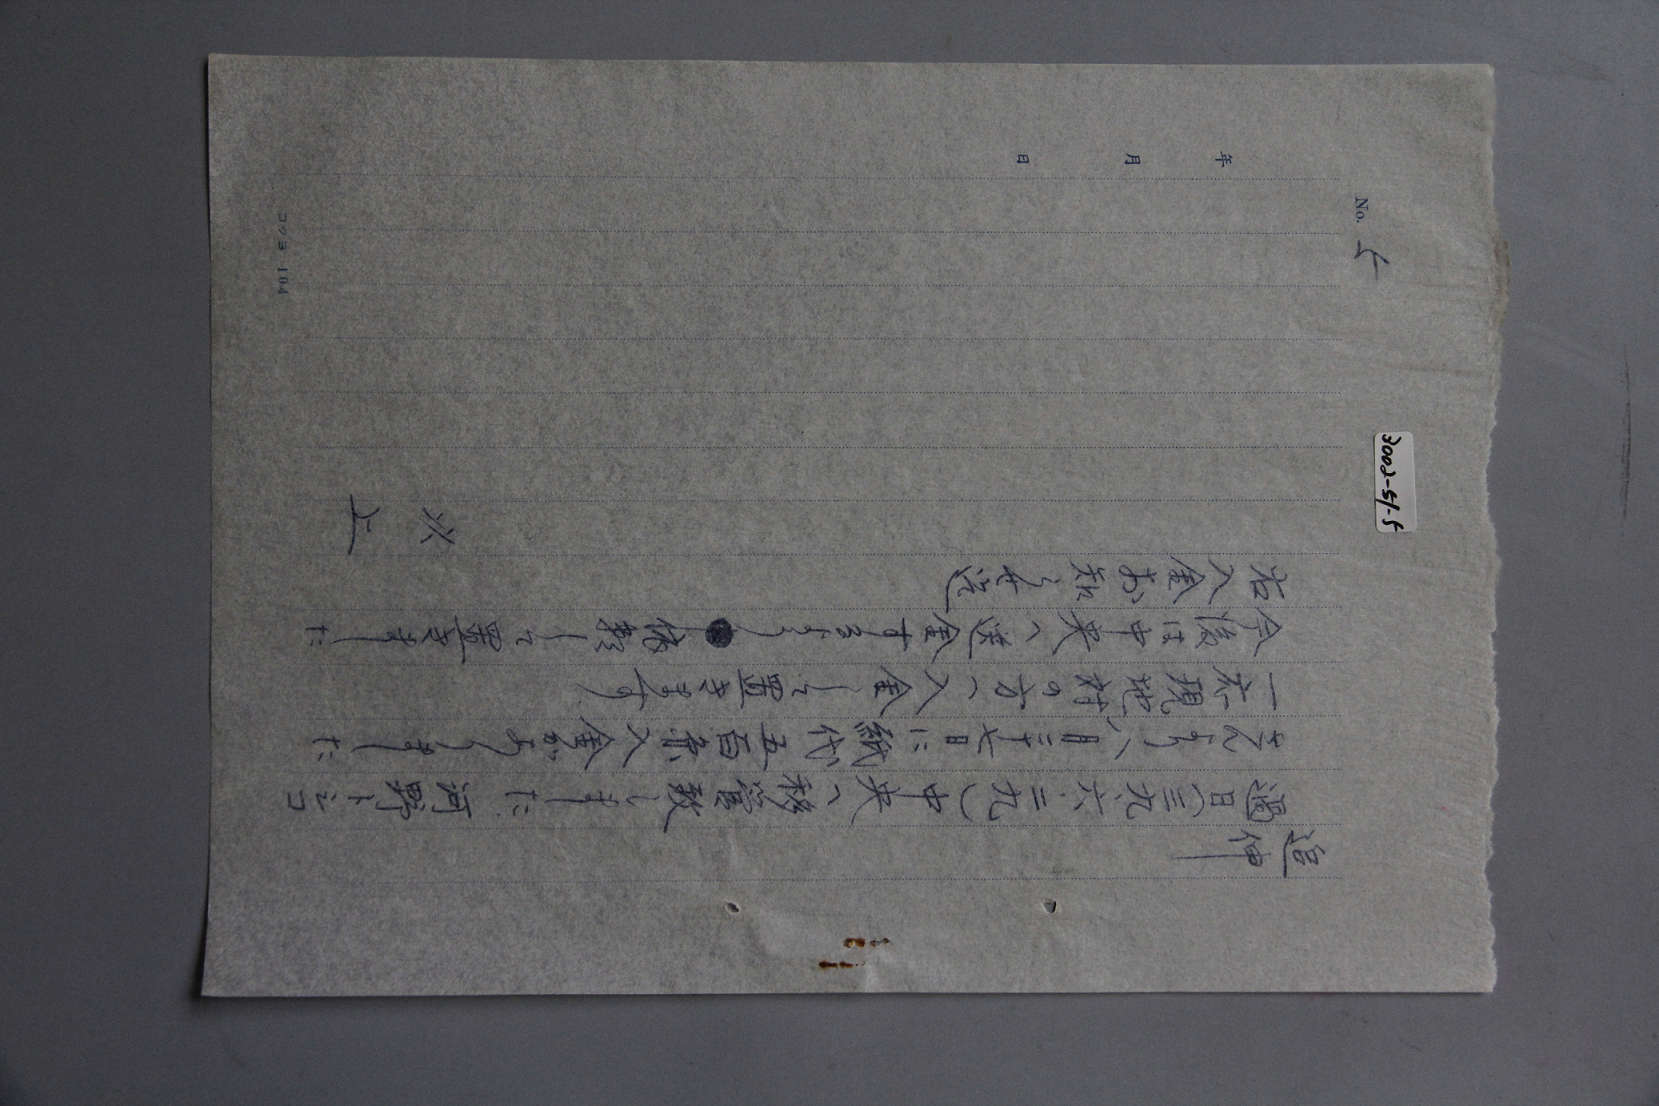 No.
年 月 日
3002-51-5
追伸
過日(三九、六、二九)中央へ移管致しました 河野トシコ
さんより八月二十七日に紙代五百 入金がありました
一応現地村の方へ入金して置きます
今後は中央へ送金するよう依頼して置きました
右入金お知らせ迄
以上
コクヨ